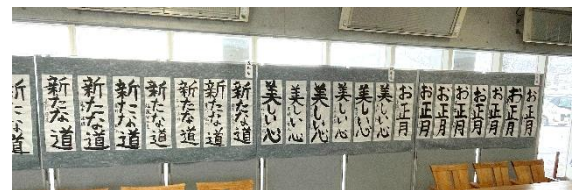 新たな道
新たな道
新たな道
新たな道
新たな道
新たな道
新たな道
新たな道
美しい心
美しい心
美しい心
美しい心
美しい心
美しい心
お正月
お正月
お正月
お正月
お正月
お正月
お正月
お正月